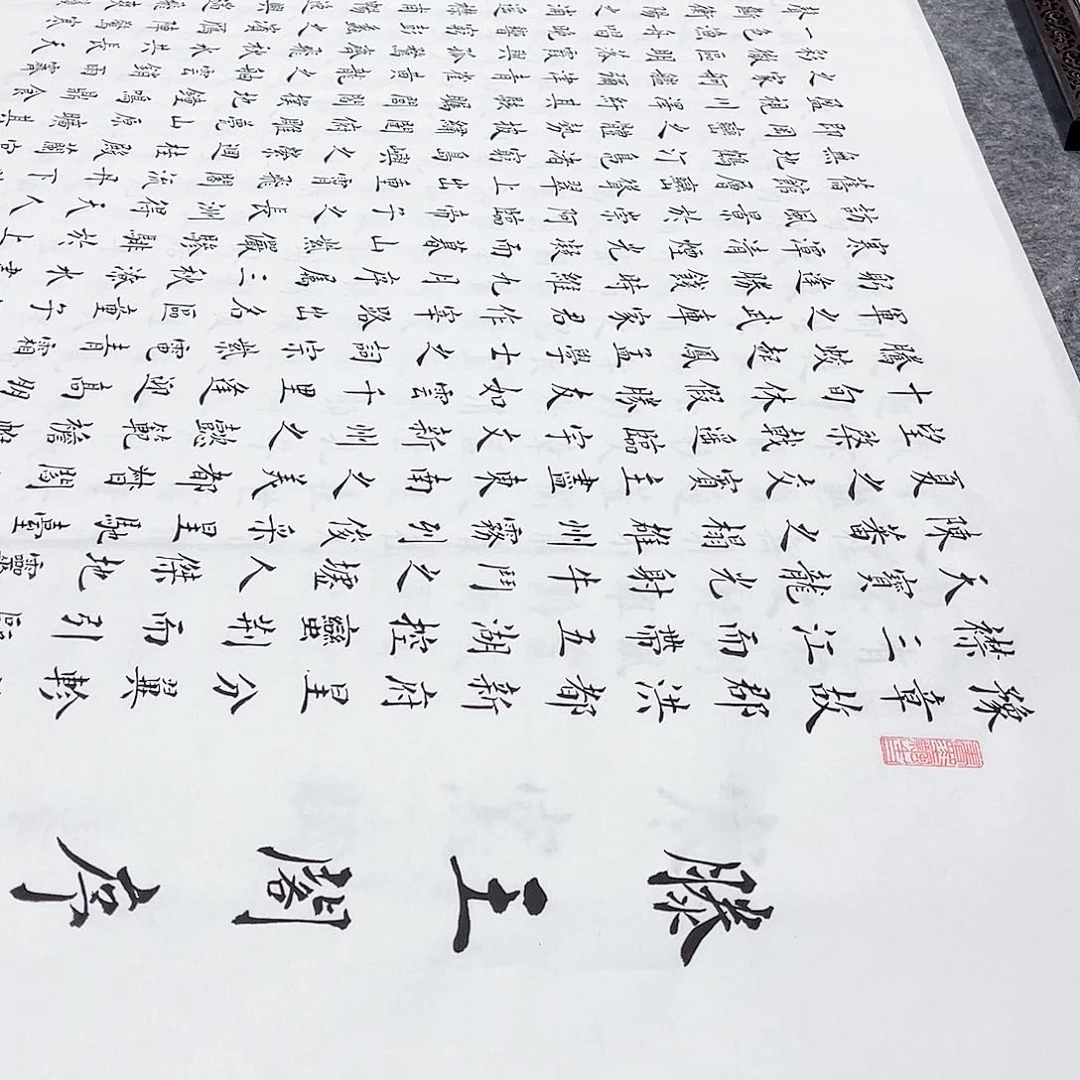 滕王閣序
豫章故郡洪都新府星分翼軫
襟三江而帶五湖控蠻荊而引甌
天寶龍光射牛鬥之墟人傑地靈
陳蕃之榻雄州霧列俊采星馳臺
夏之交賓主盡東南之美都督閻
望棨戟遙臨宇文新州之懿範襜帷
十旬休假勝友如雲千里逢迎高
騰蛟起鳳孟學士之詞宗紫電青霜
軍之武庫家君作宰路出名區童子
躬逢勝餞時維九月序屬三秋潦水
寒潭清煙光凝而暮山紫儼驂騑於上
訪風景於崇阿臨帝子之長洲得天人
舊館層巒聳翠上出重霄飛閣流丹下
無地鶴汀鳧渚窮島嶼之縈迴桂殿蘭宮
即岡巒之體勢披繡闥俯雕甍山原曠其
盈視川澤紆其駭矚閭閻撲地鐘鳴鼎食
之家舸艦彌津青雀黃龍之舳雲銷雨霽
彩徹區明落霞與孤鶩齊飛秋水共長天
一色漁舟唱晚響窮彭蠡之濱雁陣驚寒
聲斷衡陽之浦遙襟甫暢